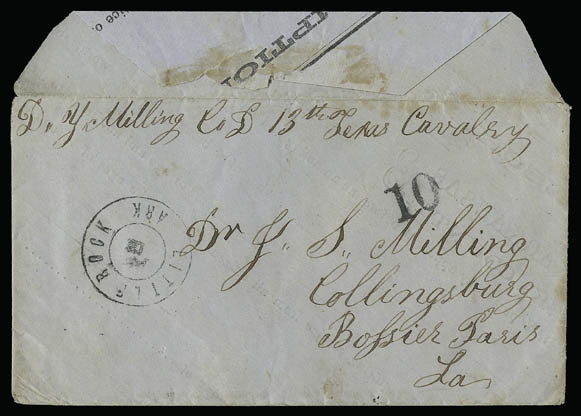 ice o.
PTION
D. Y. Milling Co D 13th Texas Cavalry
10
LITTLE ROCK ARK
Dr J. S. Milling
Collingsburg
Bossier Paris
La